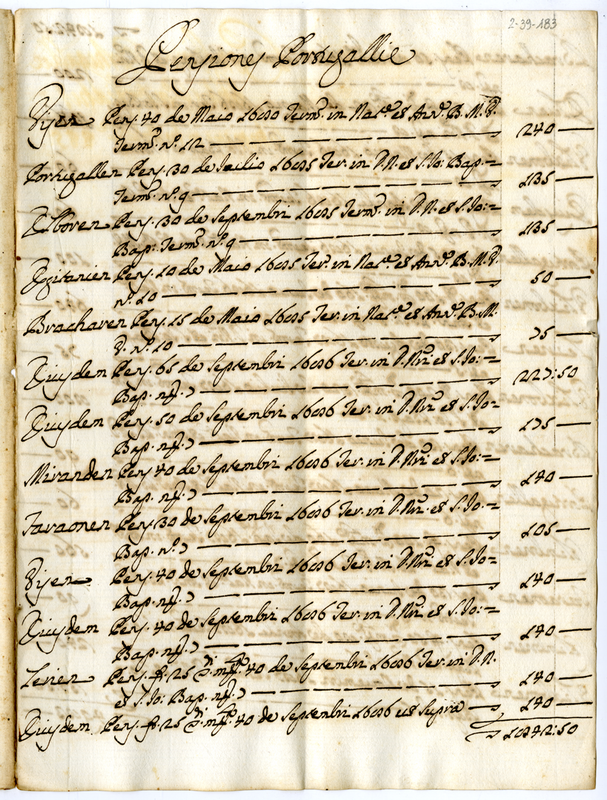 2-39-183
Pensiones Portugallie
Visen Pens. 40 de Maio Term. in Nat.e et Ann. B.M.V.
Term. n.o 12 — 240 —
Portugallen Pens. 30 de Iulio 1695 Ter. in D.N. et S. Io: Bap.=
Term. n.o 9 — 135 —
Elboren Pens. 30 de Septembri 1695 Term. in D.N. et S. Io:=
Bap. Term. n.o 9 — 135 —
Egitanien Pens. 10 de Maio 1695 Ter. in Nat.e et Ann. B.M.V.
n.o 10 — 50 —
Bracharen Pens. 15 de Maio 1695 Ter. in Nat.e et Ann. B.M.
V. n.o 10 — 75 —
Eiusdem Pens. 65 de Septembri 1696 Ter. in D.Nri et S. Io:=
Bap. n.o 7 — 227:50
Eiusdem Pens. 50 de Septembri 1696 Ter. in D.Nri et S. Io=
Bap. n.o 7 — 175 —
Miranden Pens. 40 de Septembri 1696 Ter. in D.Nri et S. Io:=
Bap. n.o 7 — 140 —
Pens. 30 de Septembri 1696 Ter. in D.Nri et S. Io:=
Bap. n.o 7 — 105 —
Visen Pens. 40 de Septembri 1696 Ter. in D.Nri et S. Io=
Bap. n.o 7 — 140 —
Eiusdem Pens. 40 de Septembri 1696 Ter. in D.Nri et S. Io:=
Bap. n.o 7 — 140 —
Pens. 25 40 de Septembri 1696 Ter. in D.N.
et S. Io: Bap. n.o 7 — 140 —
Eiusdem Pens. 25 40 de Septembri 1696 ut supra — 140 —
1842:50